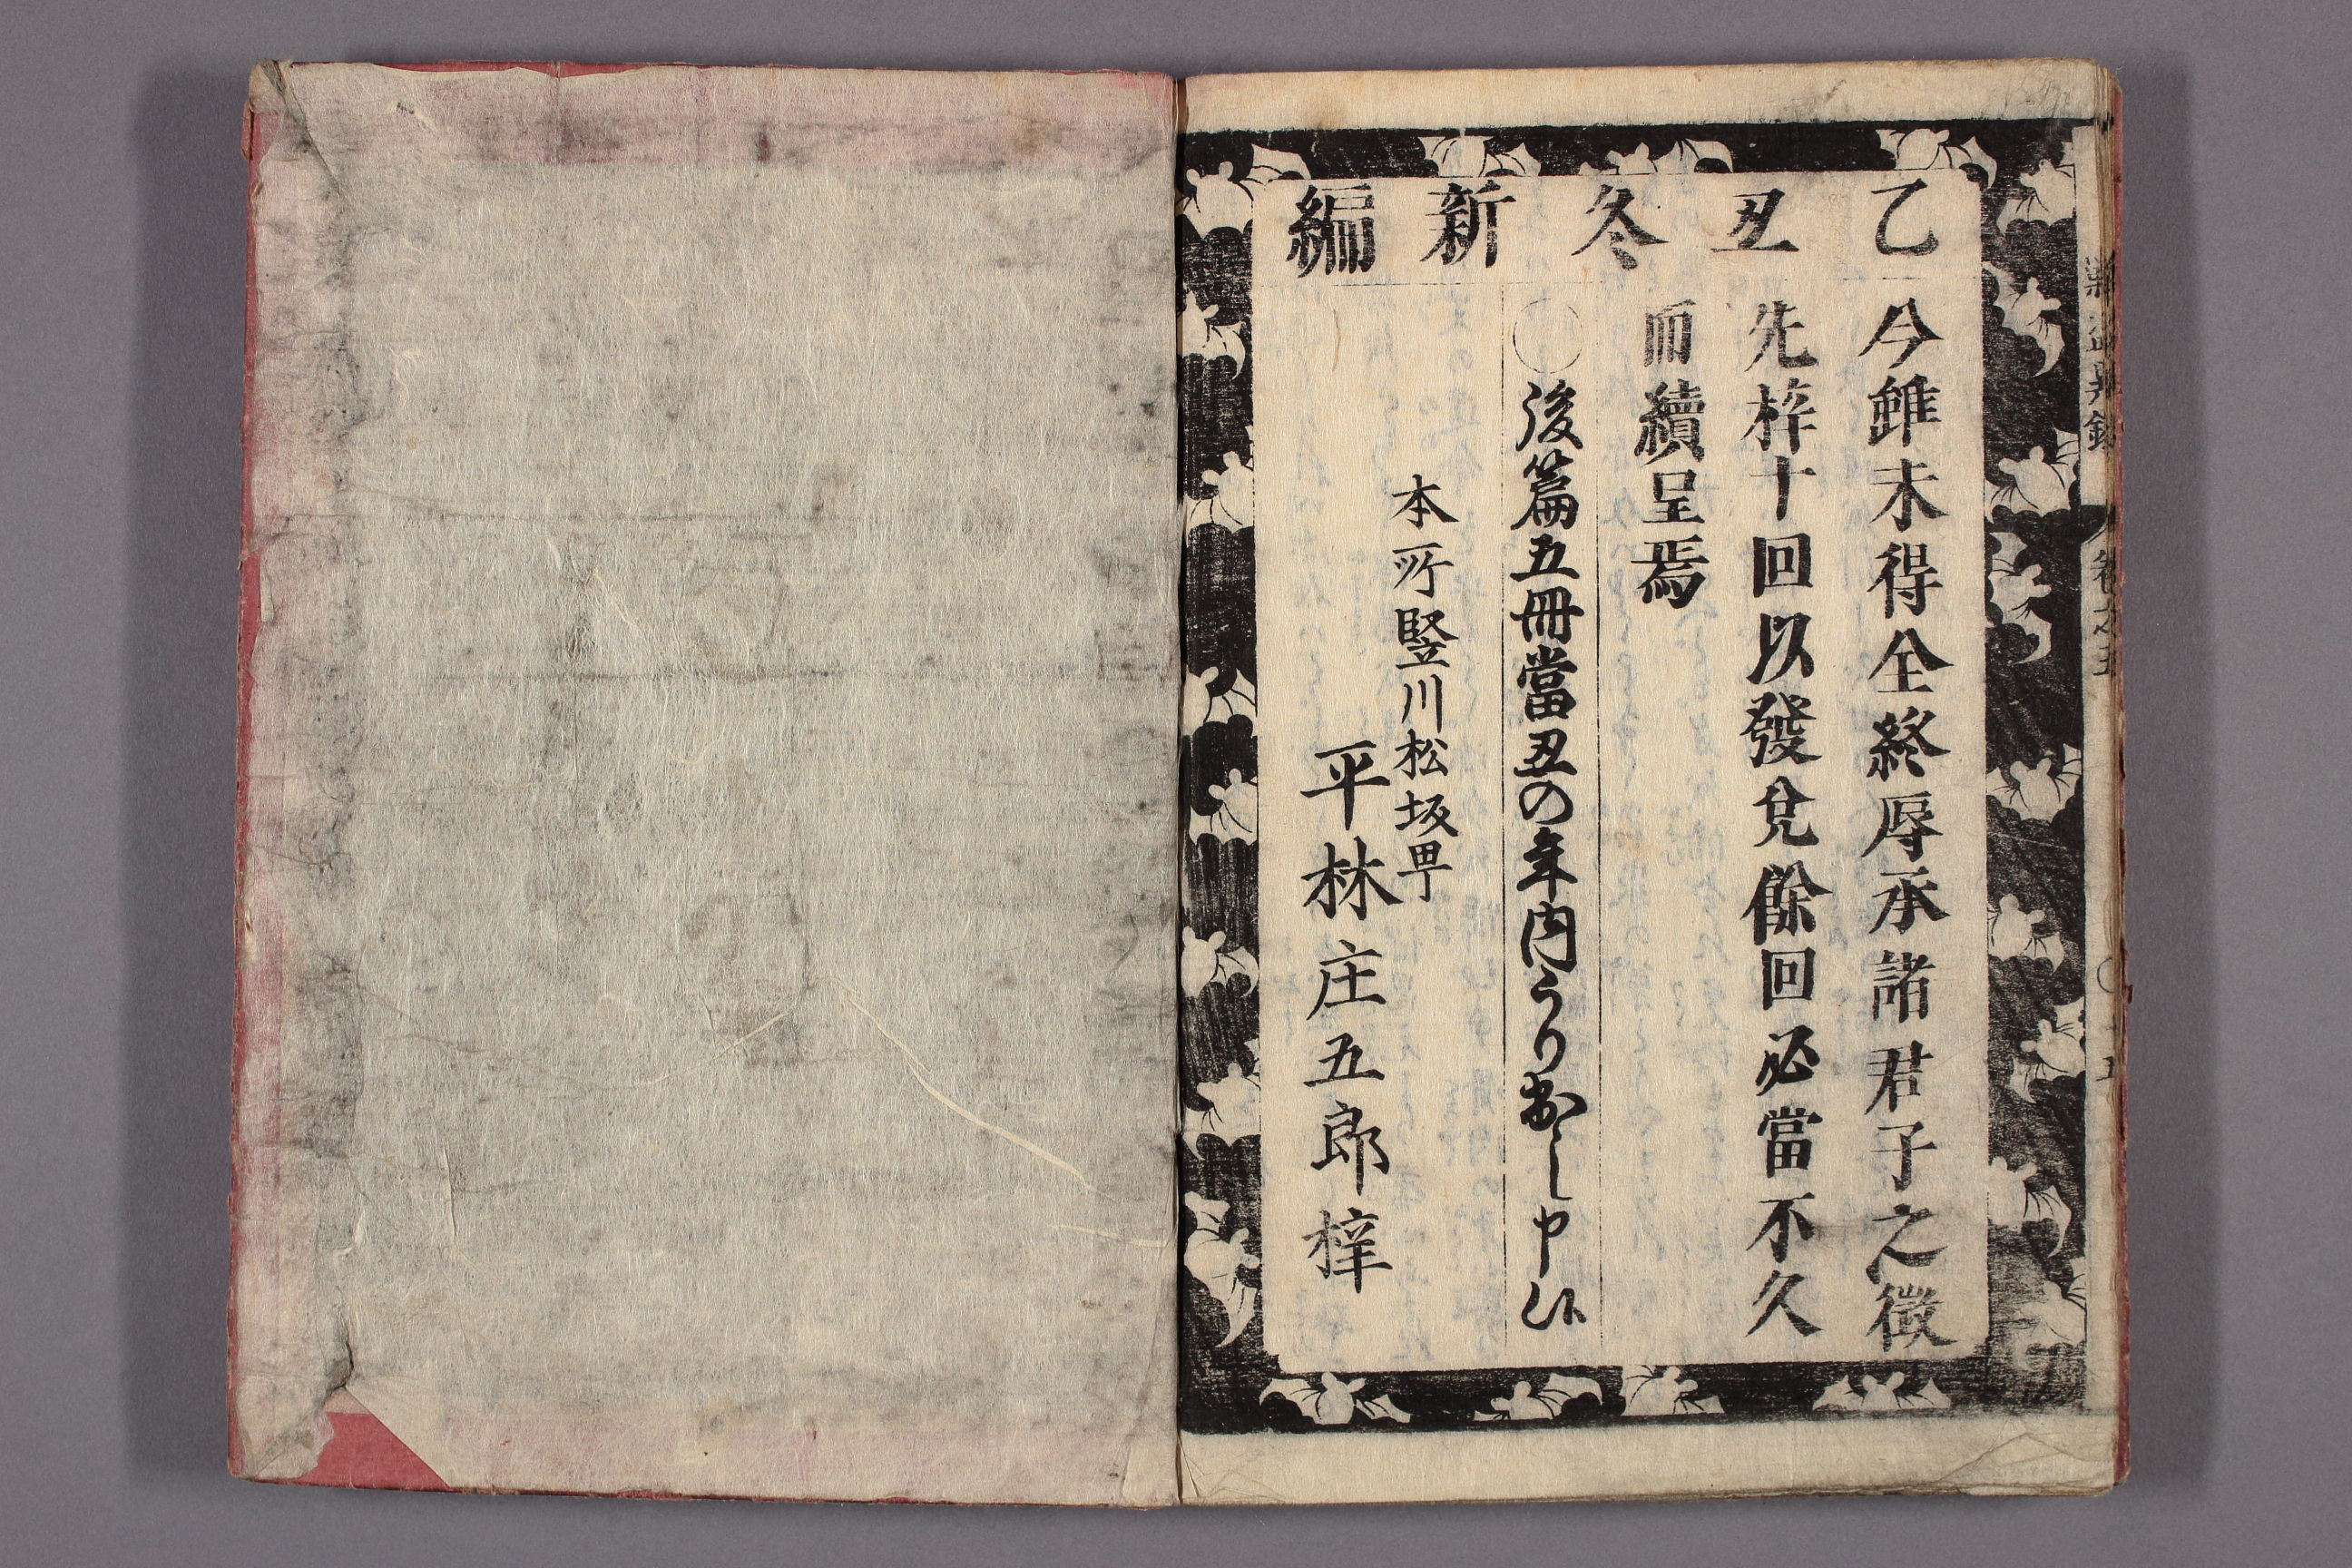 乙丑冬新編
今雖未得全終辱承諸君子之徴
先梓十回以發兌餘回必當不久
而續呈焉
○後篇五冊當丑の年内うり出し申候
本所竪川松坂町
平林庄五郎梓
卷之五